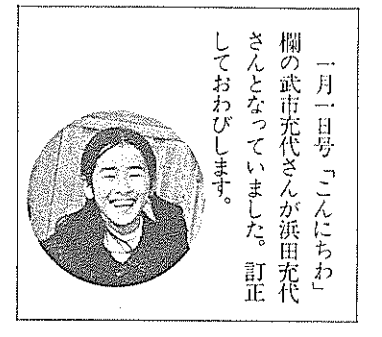 一月一日号「こんにちわ」
欄の武市充代さんが浜田充代
さんとなっていました。訂正
しておわびします。